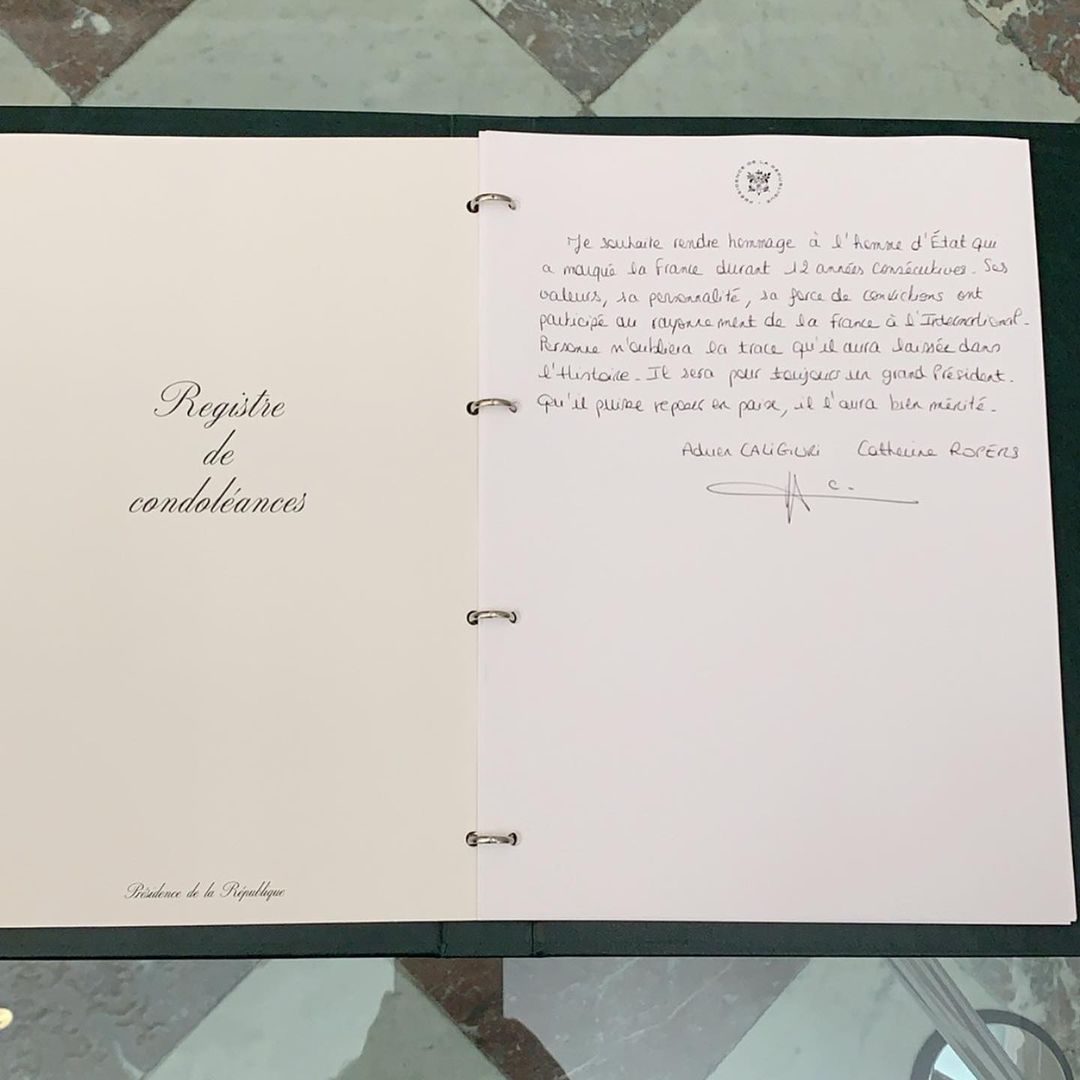 Registre
de
condoléances
Présidence de la République
PRÉSIDENCE DE LA RÉPUBLIQUE
Je souhaite rendre hommage à l'homme d'État qui
a marqué la France durant 12 années consécutives. Ses
valeurs, sa personnalité, sa force de convictions ont
participé au rayonnement de la France à l'International.
Personne n'oubliera la trace qu'il aura laissée dans
l'Histoire. Il sera pour toujours un grand Président.
Qu'il puisse reposer en paix, il l'aura bien mérité.
Adrien CALIGIURI Catherine ROPERS
C.